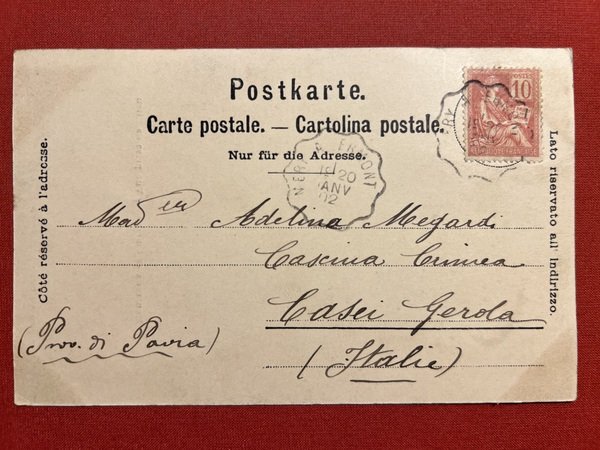 Postkarte.
Carte postale. — Cartolina postale.
Nur für die Adresse.
Côté réservé à l'adresse.
Lato riservato all' indirizzo.
POSTES
10
20
JANV
02
Adelina Megardi
Cascina Crimea
Casei Gerola
(Prov. di Pavia)
(Italie)